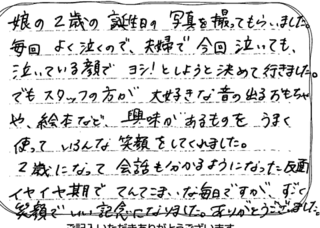 娘の2歳の誕生日の写真を撮ってもらいました。
毎回よく泣くので、夫婦で今回泣いても、
泣いている顔でヨシ!としようと決めて行きました。
でもスタッフの方が大好きな音の出るおもちゃ
や、絵本など、興味があるものをうまく
使っていろんな笑顔をしてくれました。
2歳になって会話も分かるようになった反面
イヤイヤ期でてんてこまいな毎日ですが、すごく
笑顔でいい記念になりました。ありがとうございました。
ご記入いただきありがとうございます